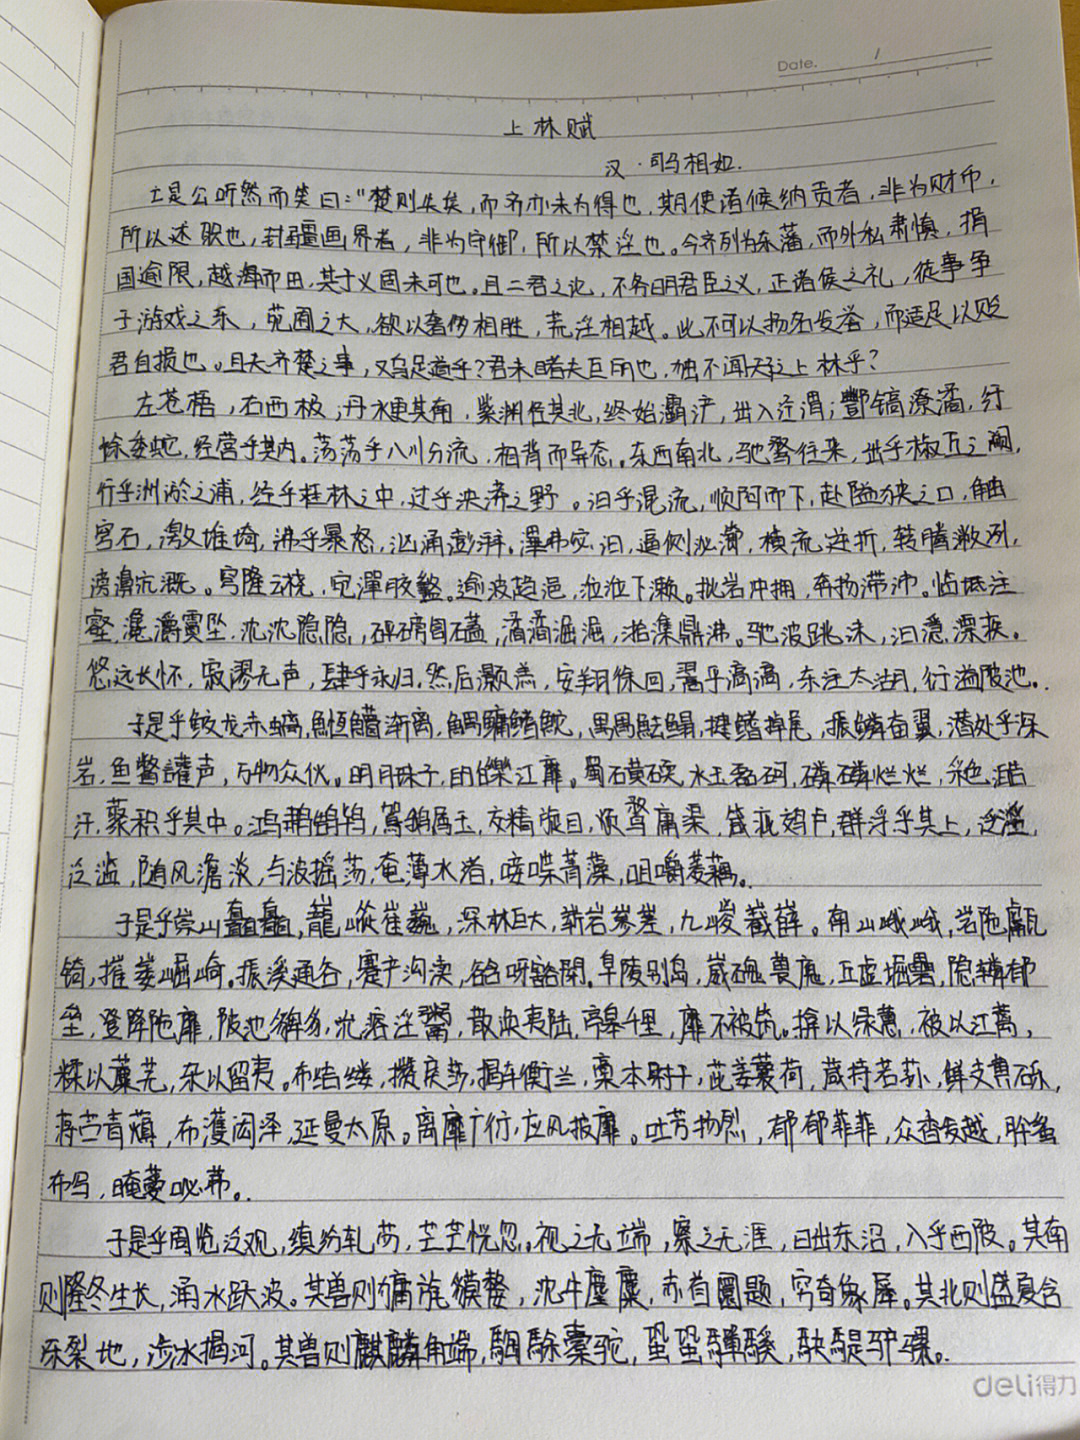 Date. /
上林赋
汉·司马相如.
亡是公听然而笑曰:"楚则失矣,而齐亦未为得也,期使诸侯纳贡者,非为财币,
所以述职也,封疆画界者,非为守御,所以禁淫也。今齐列为东藩,而外私肃慎,捐
国逾限,越海而田,其于义固未可也。且二君之论,不务明君臣之义,正诸侯之礼,徒事争
于游戏之乐,苑囿之大,欲以奢侈相胜,荒淫相越。此不可以扬名发誉,而适足以贬
君自损也。且夫齐楚之事,又乌足道乎?君未睹夫巨丽也,独不闻天子之上林乎?
左苍梧,右西极,丹水更其南,紫渊径其北,终始灞浐,出入泾渭;酆镐潦潏,纡
馀委蛇,经营乎其内。荡荡乎八川分流,相背而异态。东西南北,驰骛往来,出乎椒丘之阙,
行乎洲淤之浦,经乎桂林之中,过乎泱漭之野。汩乎混流,顺阿而下,赴隘狭之口,触
穹石,激堆埼,沸乎暴怒,汹涌澎湃。滭弗宓汩,逼侧泌瀄,横流逆折,转腾潎洌,
滂濞沆溉。穹隆云桡,宛潬胶盭。逾波趋浥,涖涖下濑。批岩冲拥,奔扬滞沛。临坻注
壑,瀺灂霣坠,沈沈隐隐,砰磅訇礚,潏潏淈淈,湁潗鼎沸。驰波跳沫,汩㴔漂疾。
悠远长怀,寂漻无声,肆乎永归。然后灏溔,安翔徐回,翯乎滈滈,东注太湖,衍溢陂池。
于是乎鲛龙赤螭,䱭䲛渐离,鰅鳙鳍鮀,禺禺魼鳎,揵鳍掉尾,振鳞奋翼,潜处乎深
岩,鱼鳖讙声,万物众伙。明月珠子,的皪江靡。蜀石黄碝,水玉磊砢,磷磷烂烂,采色澔
汗,藂积乎其中。鸿鹔鹄鸨,鴐鹅属玉,交精旋目,烦鹜庸渠,箴疵䴔卢,群浮乎其上,泛淫
泛滥,随风澹淡,与波摇荡,奄薄水渚,唼喋菁藻,咀嚼菱藕。
于是乎崇山矗矗,巃嵷崔巍,深林巨木,崭岩参差,九嵕巀嶭。南山峨峨,岩陁甗
锜,摧崣崛崎。振溪通谷,蹇产沟渎,谽呀豁閕。阜陵别岛,崴磈㟪廆,丘虚堀礨,隐辚郁
垒,登降陁靡,陂池貏豸,沇溶淫鬻,散涣夷陆,亭皋千里,靡不被筑。揜以绿蕙,被以江蓠,
糅以蘪芜,杂以留夷。布结缕,攒戾莎,揭车衡兰,槀本射干,茈姜蘘荷,葴持若荪,鲜支黄砾,
蒋苎青薠,布濩闳泽,延曼太原。离靡广衍,应风披靡。吐芳扬烈,郁郁菲菲,众香发越,肸蚃
布写,晻薆咇茀。
于是乎周览泛观,缜纷轧芴,芒芒恍忽。视之无端,察之无涯,日出东沼,入乎西陂。其南
则隆冬生长,涌水跃波。其兽则㺎旄貘嫠,沈牛麈麋,赤首圜题,穷奇象犀。其北则盛夏含
冻裂地,涉水揭河。其兽则麒麟角端,騊駼橐驼,蛩蛩驒騱,駃騠驴骡。
deli得力